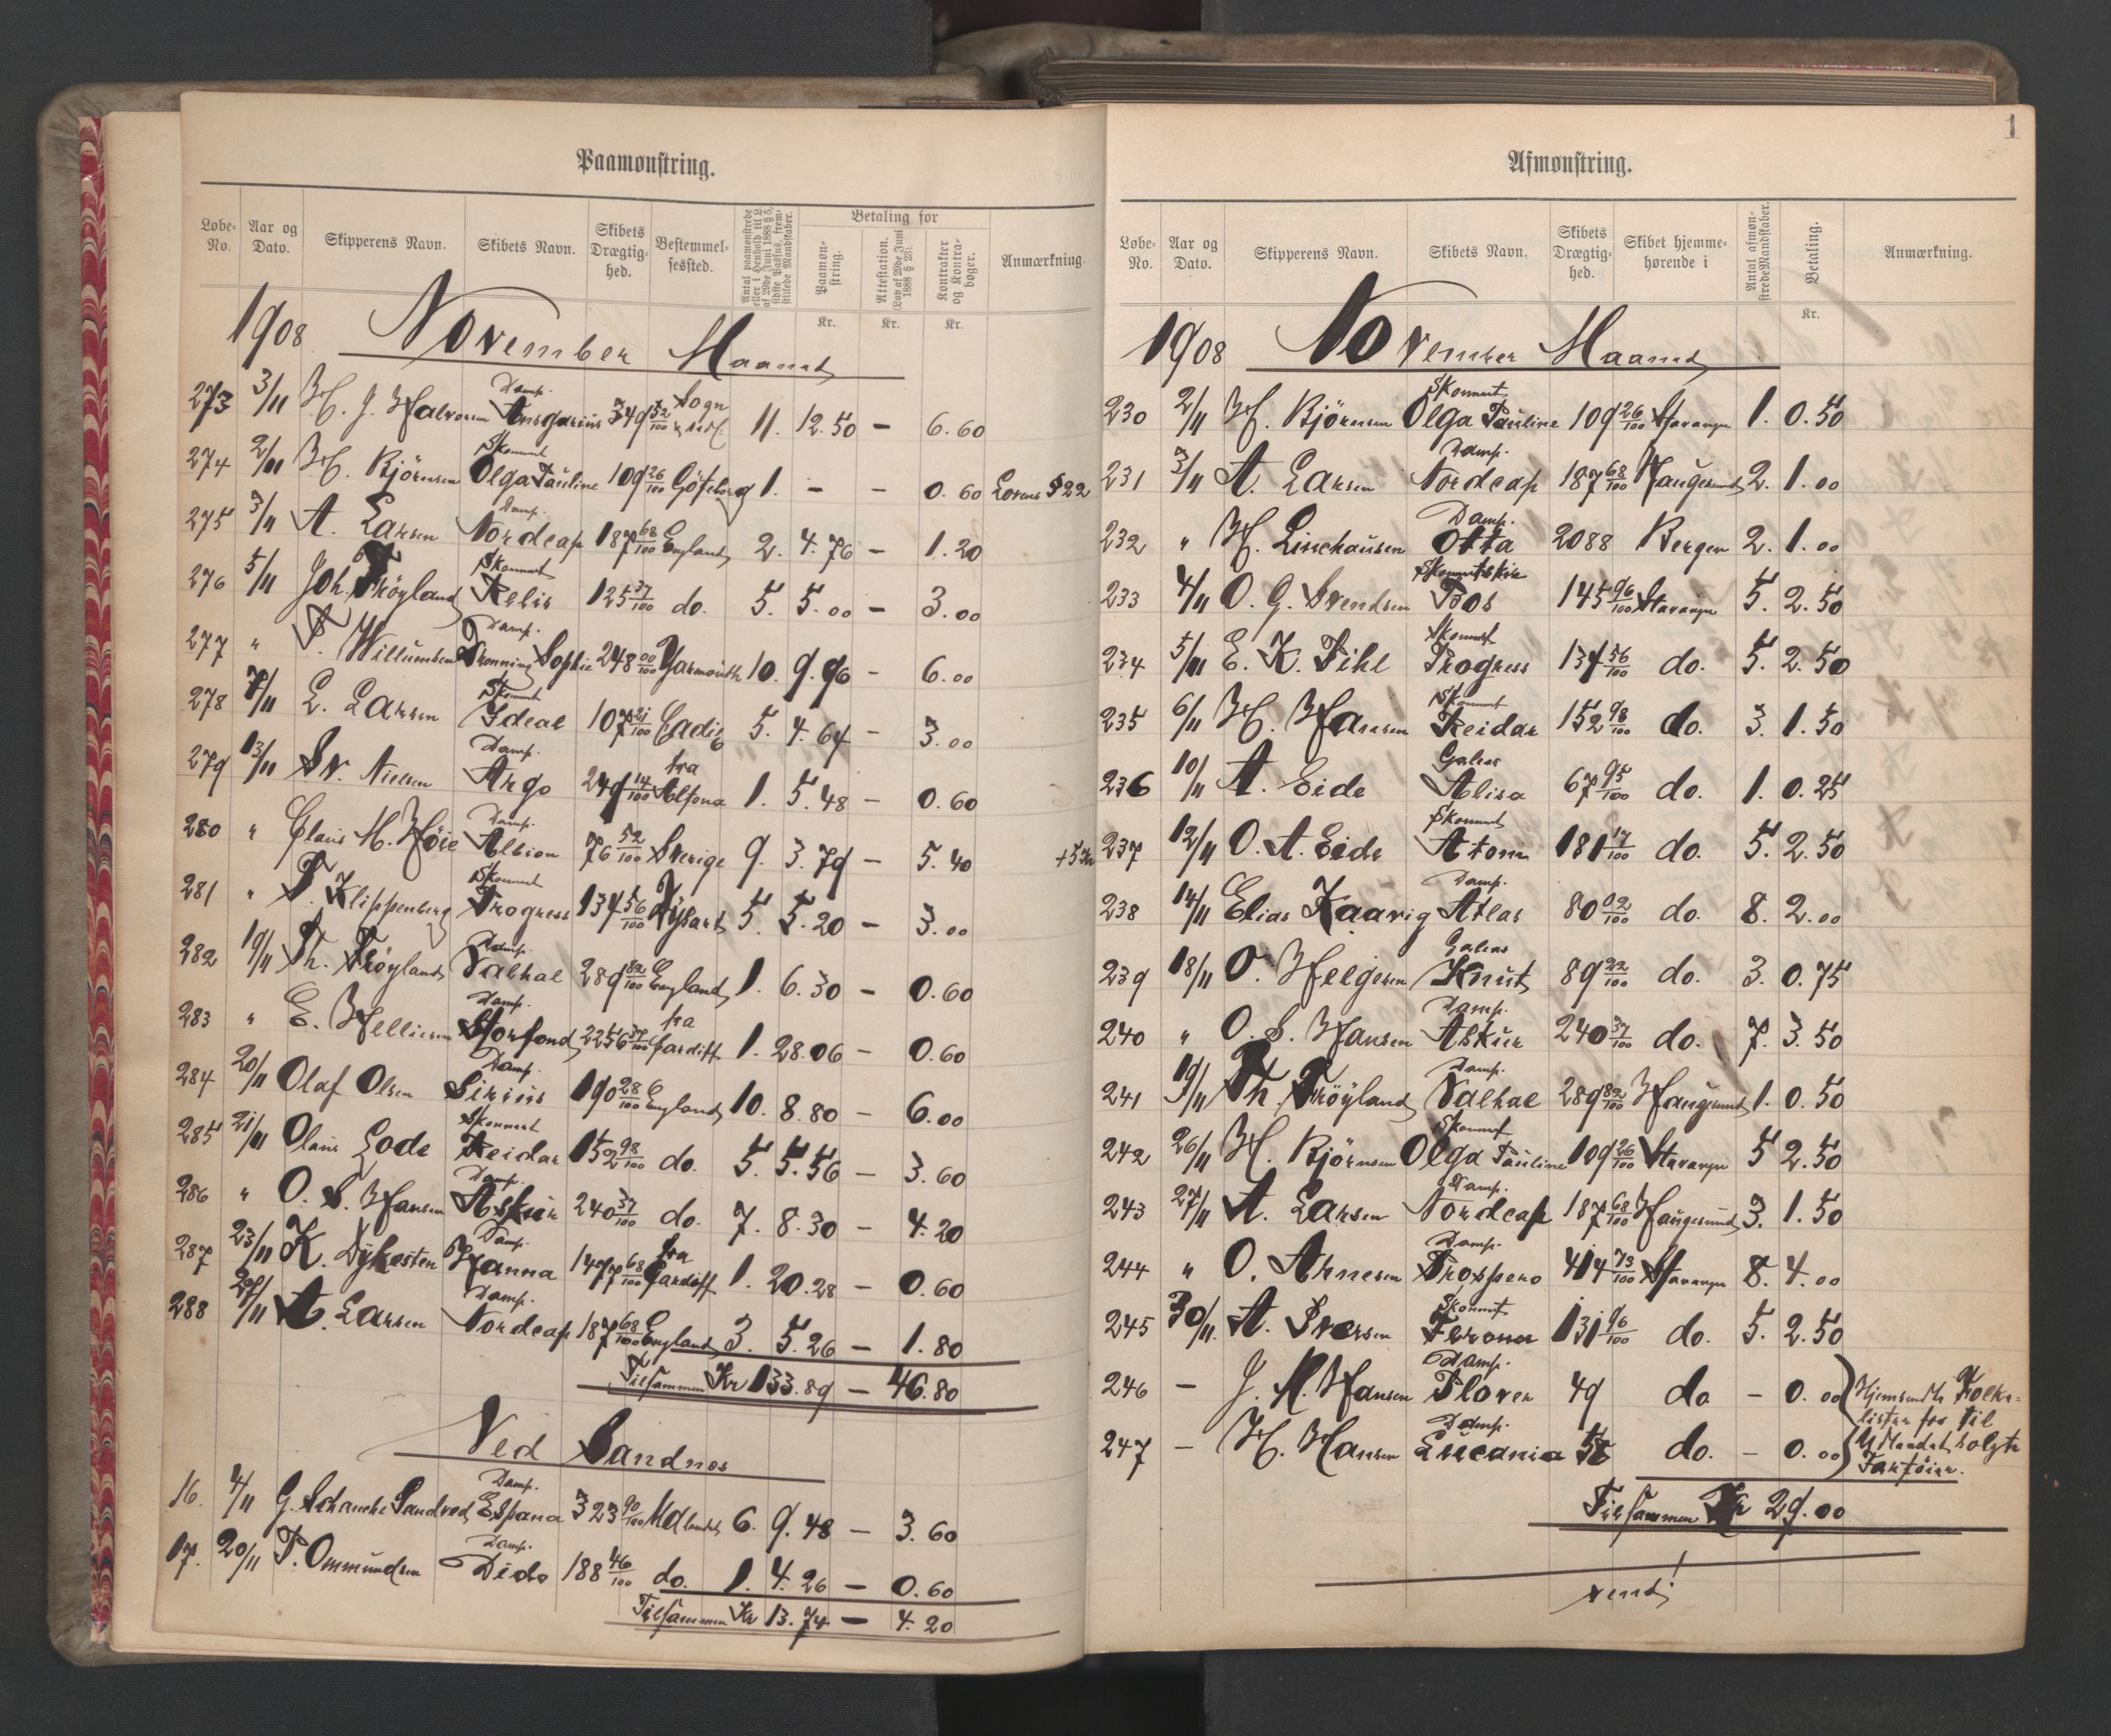 Paamønstring.
Løbe-No. Aar og Dato. Skipperens Navn. Skibets Navn. Skibets Drægtig-hed. Bestemmel-sessted. Antal paamønstrede eller i Henhold til L. af 29de Juni 1888 § 5, sidste Passus, frem-stillede Mandskaber. Betaling for Paamøn-string. Attestation. (Lov af 29de Juni 1888 § 28). Kontrakter og Kontra-bøger. Anmærkning.
Kr. Kr. Kr.
1908 November Maaned
273 3/11 H. J. Halvorsen Damp. Ansgarius 349 52/100 Sogn 11. 12.50 — 6.60
274 2/11 H. Björnsen Skonnert Olga Pauline 109 26/100 Göteborg 1. — — 0.60 Lovens § 22
275 3/11 A. Larsen Damp. Nordcap 187 68/100 England 2. 4.76 — 1.20
276 5/11 Joh. Tröyland Skonnert Relis 125 37/100 do. 5. 5.00 — 3.00
277 " Willumsen Damp. Dronning Sophie 248 00/100 Yarmouth 10. 9.96 — 6.00
278 7/11 L. Larsen Skonnert Ideal 107 21/100 Cadiz 5. 4.64 — 3.00
279 13/11 Sv. Nielsen Damp. Argo 249 14/100 fra Altona 1. 5.48 — 0.60
280 " Claus M. Höie Damp. Albion 76 52/100 Sverige 9. 3.79 — 5.40 + 5 Kr
281 " T. Klippenberg Skonnert Progress 134 56/100 5. 5.20 — 3.00
282 19/11 Th. Tröyland Damp. Valhal 289 82/100 England 1. 6.30 — 0.60
283 " E. Hellisen Damp. Storfond 2256 37/100 fra Cardiff 1. 28.06 — 0.60
284 20/11 Olaf Olsen Damp. Sirius 190 28/100 England 10. 8.80 — 6.00
285 21/11 Olaus Lode Skonnert Reidar 152 98/100 do. 5. 5.56 — 3.60
286 " O. S. Hansen Damp. Askur 240 37/100 do. 7. 8.30 — 4.20
287 23/11 K. Dykesten Damp. Hanna 1477 68/100 fra Cardiff 1. 20.28 — 0.60
288 27/11 A. Larsen Damp. Nordcap 187 68/100 England 3. 5.26 — 1.80
Tilsammen Kr 133.89 — 46.80
Ved Sandnes
16. 4/11 G. Schanche Sandved Damp. España 323 90/100 Udlandet 6. 9.48 — 3.60
17. 20/11 T. Ommundsen Damp. Dido 188 46/100 do. 1. 4.26 — 0.60
Tilsammen Kr 13.74 — 4.20
1
Afmønstring.
Løbe-No. Aar og Dato. Skipperens Navn. Skibets Navn. Skibets Drægtig-hed. Skibet hjemme-hørende i Antal afmøn-strede Mandskaber. Betaling. Anmærkning.
Kr.
1908 November Maaned
230 2/11 H. Björnsen Skonnert Olga Pauline 109 26/100 Stavanger 1. 0.50
231 3/11 A. Larsen Damp. Nordcap 187 68/100 Haugesund 2. 1.00
232 " H. Linehausen Damp. Otta 2088 Bergen 2. 1.00
233 4/11 O. G. Svendsen Bos 145 96/100 Stavanger 5. 2.50
234 5/11 E. K. Pihl Skonnert Progress 134 56/100 do. 5. 2.50
235 6/11 H. Hansen Skonnert Reidar 152 98/100 do. 3. 1.50
236 10/11 A. Eide Galeas Alisa 67 95/100 do. 1. 0.25
237 12/11 O. A. Eide Skonnert Atom 181 17/100 do. 5. 2.50
238 14/11 Elias Kaavig Damp. Atlas 80 02/100 do. 8. 2.00
239 18/11 O. Helgesen Galeas Knut 89 22/100 do. 3. 0.75
240 " O. S. Hansen Damp. Askur 240 37/100 do. 7. 3.50
241 19/11 Th. Tröyland Damp. Valhal 289 82/100 Haugesund 1. 0.50
242 26/11 H. Björnsen Skonnert Olga Pauline 109 26/100 Stavanger 5 2.50
243 27/11 A. Larsen Damp. Nordcap 187 68/100 Haugesund 3. 1.50
244 " O. Arnesen Damp. Prospero 414 73/100 Stavanger 8. 4.00
245 30/11. A. Iversen Skonnert Verona 131 96/100 do. 5. 2.50
246 — J. M. Hansen Damp. Plover 49 do — 0.00 Hjemsendte Folke-
247 — H. Hansen Damp. Lucania do. — 0.00 lister for til Udlandet solgte Fartöier.
Tilsammen Kr 29.00
vend!